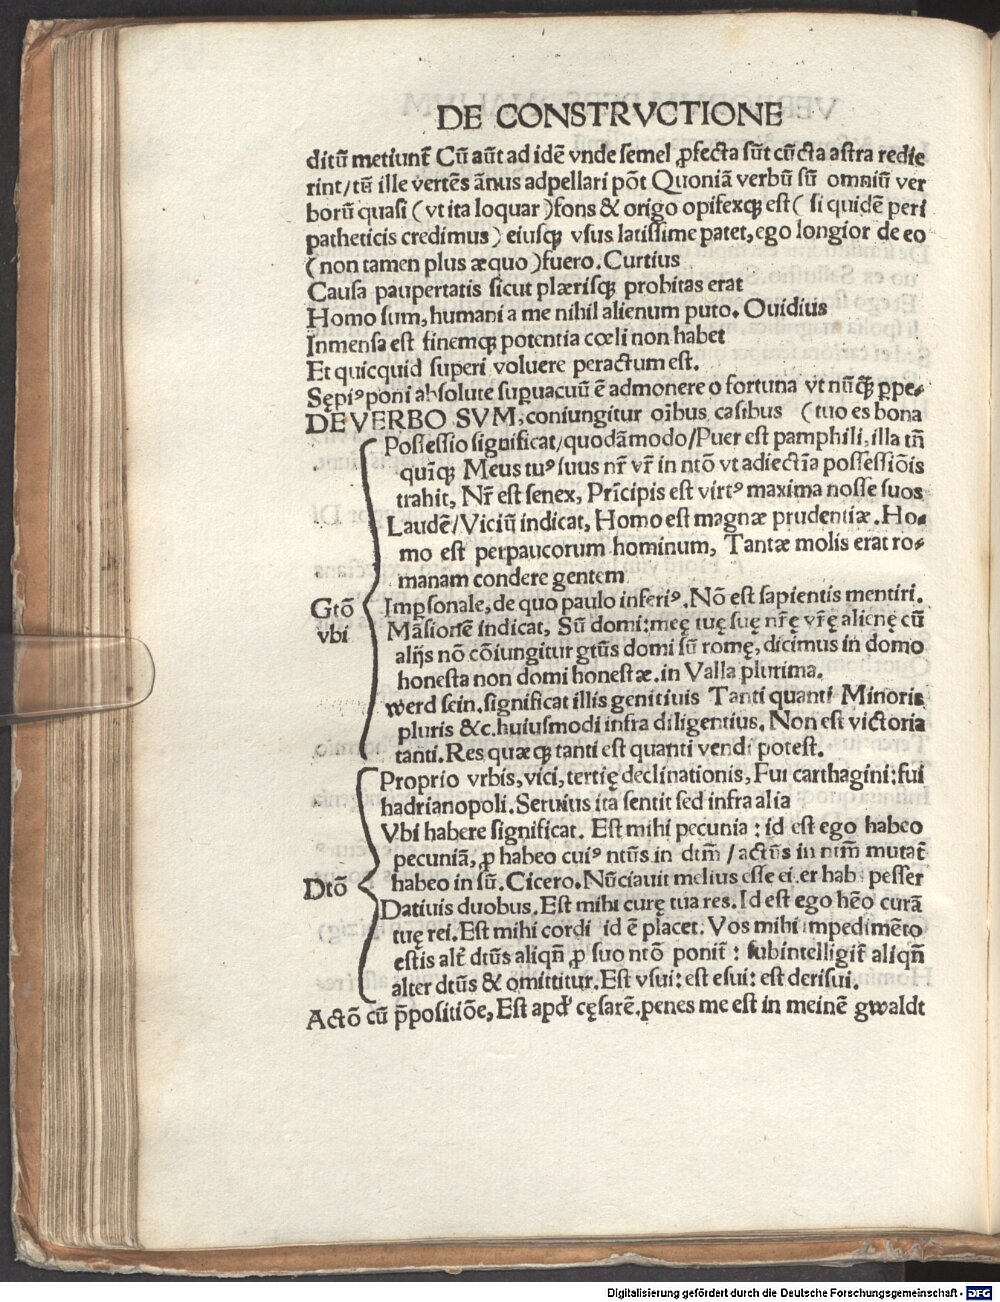 DE CONSTRVCTIONE
ditū metiunt᷑ Cū aūt ad idē vnde semel ꝓfecta sūt cūcta astra redie
rint/tū ille vertēs ānus adpellari pōt Quoniā verbū sū omniū ver
borū quasi ( vt ita loquar )fons & origo opifexqꝫ est ( si quidē peri
patheticis credimus ) eiusqꝫ vsus latissime patet, ego longior de eo
( non tamen plus æquo )fuero. Curtius
Causa paupertatis sicut plærisqꝫ probitas erat
Homo sum, humani a me nihil alienum puto. Ouidius
Inmensa est finemqꝫ potentia cœli non habet
Et quicquid superi voluere peractum est.
Sępiꝰ poni absolute supuacuū ē admonere o fortuna vt nūqꝫ̄ ꝑpe-
DE VERBO SVM, coniungitur oībus casibus ( tuo es bona
Possessio significat/quodāmodo/Puer est pamphili, illa tn̄
quīqꝫ Meus tuꝰ suus nr̄ vr̄ in ntō vt adiectīa possessiōis
trahit, Nr̄ est senex, Prīcipis est virtꝰ maxima nosse suos
Laudē/Viciū indicat, Homo est magnæ prudentiæ. Ho-
mo est perpaucorum hominum, Tantæ molis erat ro-
manam condere gentem
Gtō
vbi
Impsonale, de quo paulo inferiꝰ. Nō est sapientis mentiri.
Māsionē indicat, Sū domi: meę tuę suę nr̄ę vr̄ę alienę cū
alijs nō cōiungitur gtūs domi sū romę, dicimus in domo
honesta non domi honestæ. in Valla plurima.
werd sein. significat illis genitiuis Tanti quanti Minoris
pluris &c. huiusmodi infra diligentius. Non est victoria
tanti. Res quæqꝫ tanti est quanti vendi potest.
Proprio vrbis, vici, tertię declinationis, Fui carthagini: fui
hadrianopoli. Seruius ita sentit sed infra alia
Vbi habere significat. Est mihi pecunia : id est ego habeo
pecuniā, ꝓ habeo cuiꝰ ntūs in dtm̄ / actūs in ntm̄ mutat᷑
Dtō
habeo in sū. Cicero. Nūciauit melius esse ei. er hab pesser
Datiuis duobus. Est mihi curę tua res. Id est ego hēo curā
tuę rei. Est mihi cordi id ē placet. Vos mihi impedimēto
estis alt᷑ dtūs aliqn̄ ꝓ suo ntō ponit᷑ : subintelligit᷑ aliqn̄
alter dtūs & omittitur. Est vsui: est esui: est derisui.
Actō cū p̄positiōe, Est apd' cęsarē. penes me est in meinē gwaldt
Digitalisierung gefördert durch die Deutsche Forschungsgemeinschaft - DFG